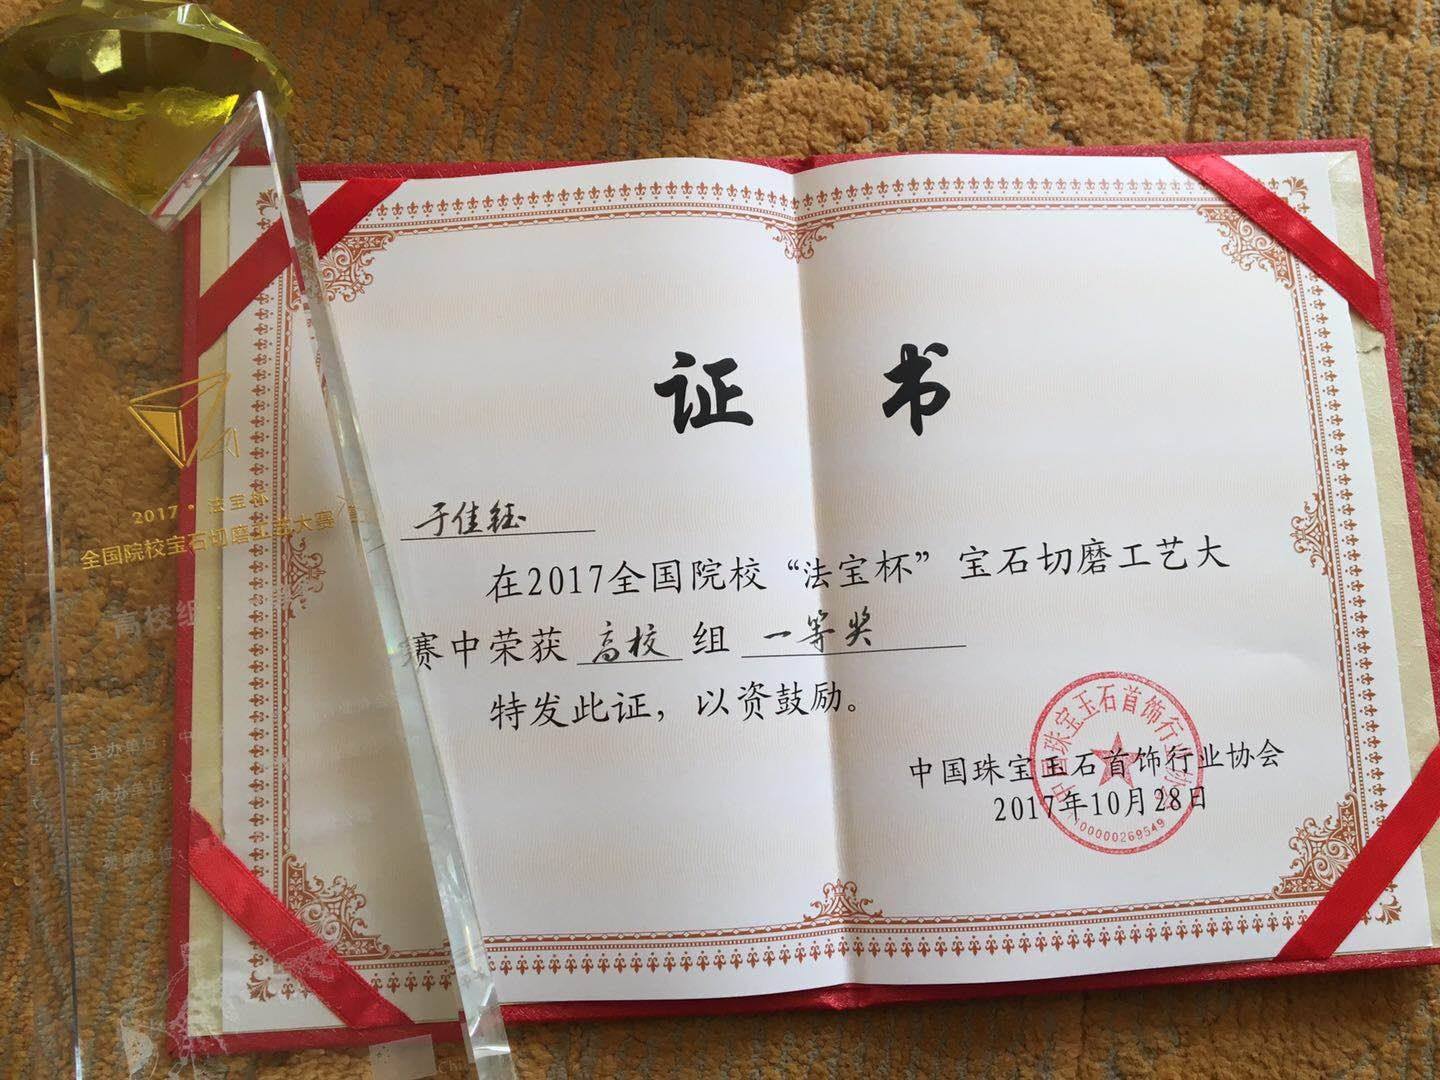 证 书
于佳钰
在2017全国院校“法宝杯”宝石切磨工艺大
赛中荣获 高校 组 一等奖
特发此证，以资鼓励。
中国珠宝玉石首饰行业协会
2017年10月28日
中国珠宝玉石首饰行业协会
100000269549
2017·法宝杯
全国院校宝石切磨工艺大赛
高校组
主办单位：中
承办单位：